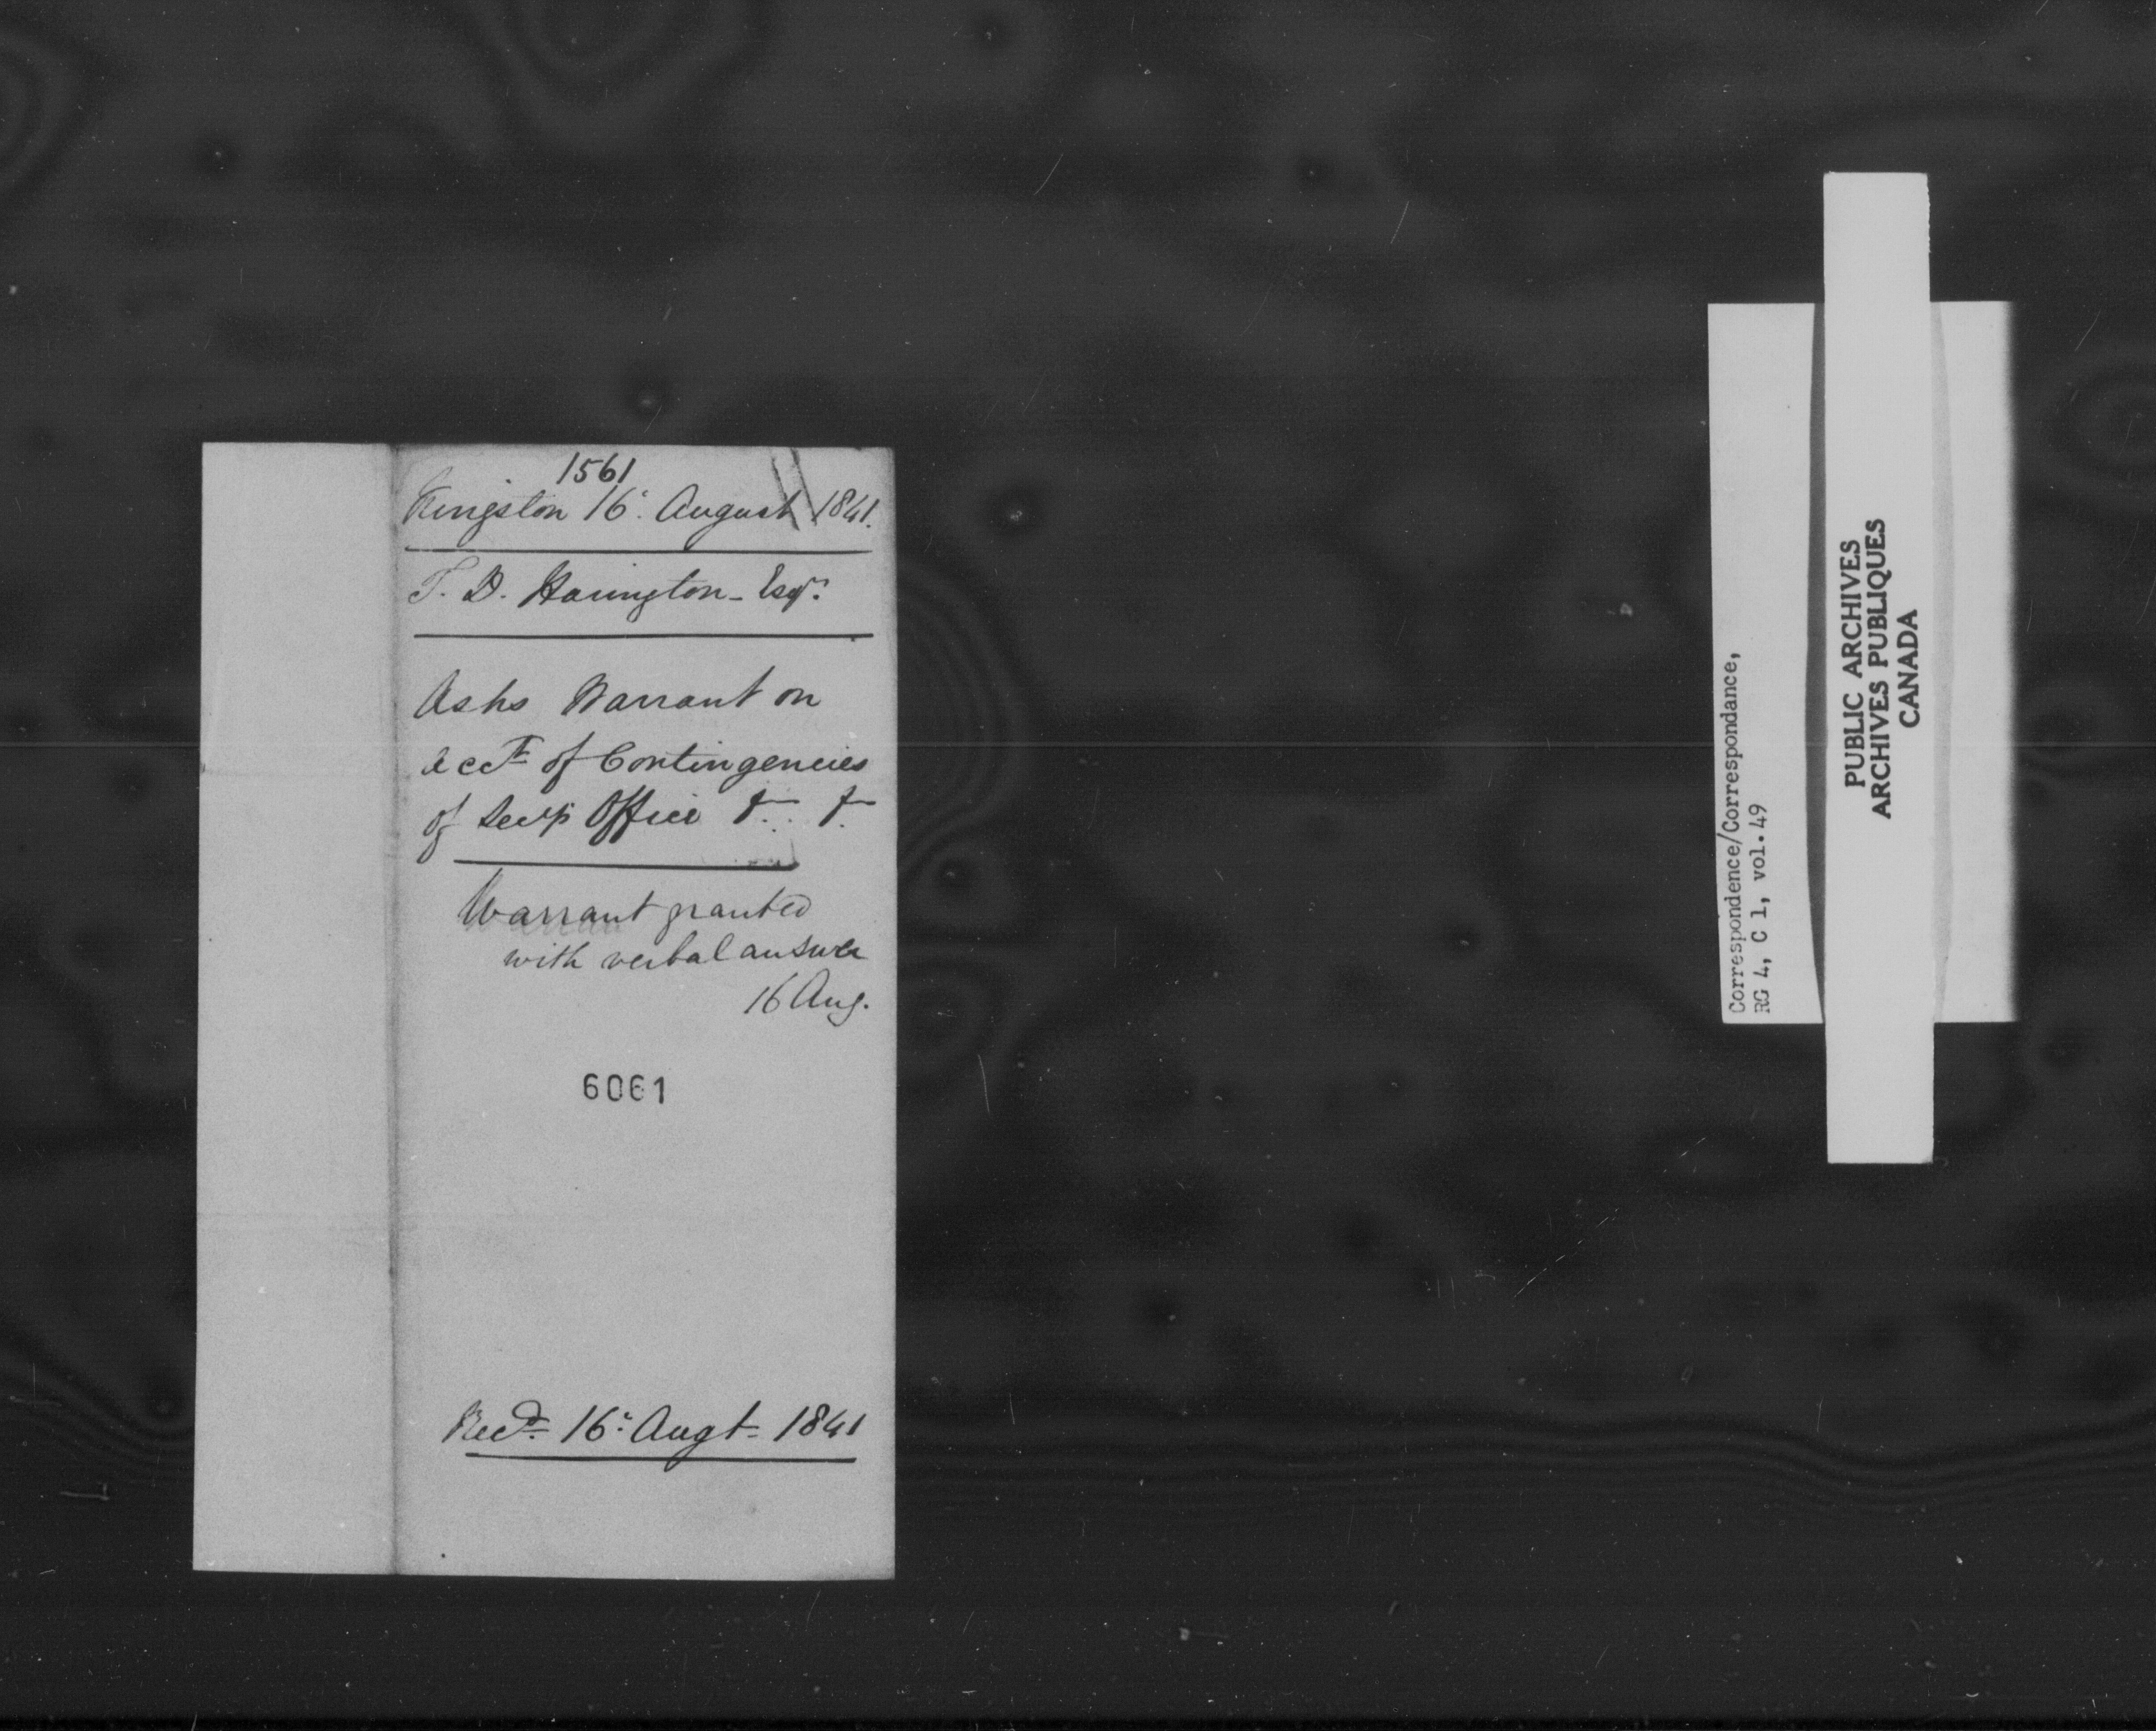 1561
Kingston 16. August 1841.
T. D. Harington - Esqr.
Asks Warrant on
acct of Contingencies
of Secy's Office &. &.
Warrant granted
with verbal answer
16 Aug.
6061
Recd. 16. Augt- 1841
Correspondence/Correspondance,
RG 4, C 1, vol.49
PUBLIC ARCHIVES
ARCHIVES PUBLIQUES
CANADA